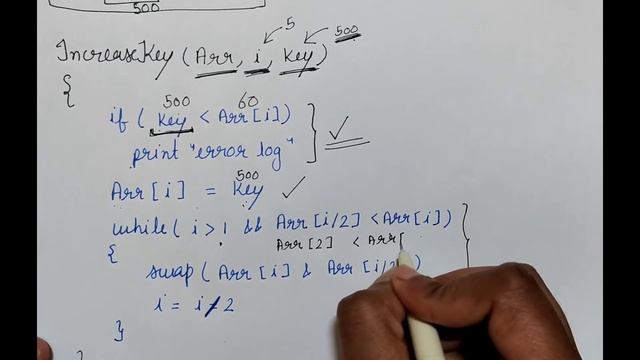 500
5
IncreaseKey ( Arr, i, Key ) 500
{
500 60
if ( Key < Arr[i] )
print "error log"
500
Arr[i] = Key
while( i > 1 && Arr[i/2] < Arr[i] )
{ Arr[2] < Arr[
swap ( Arr[i] & Arr[i/2 )
i = i/2
}
}